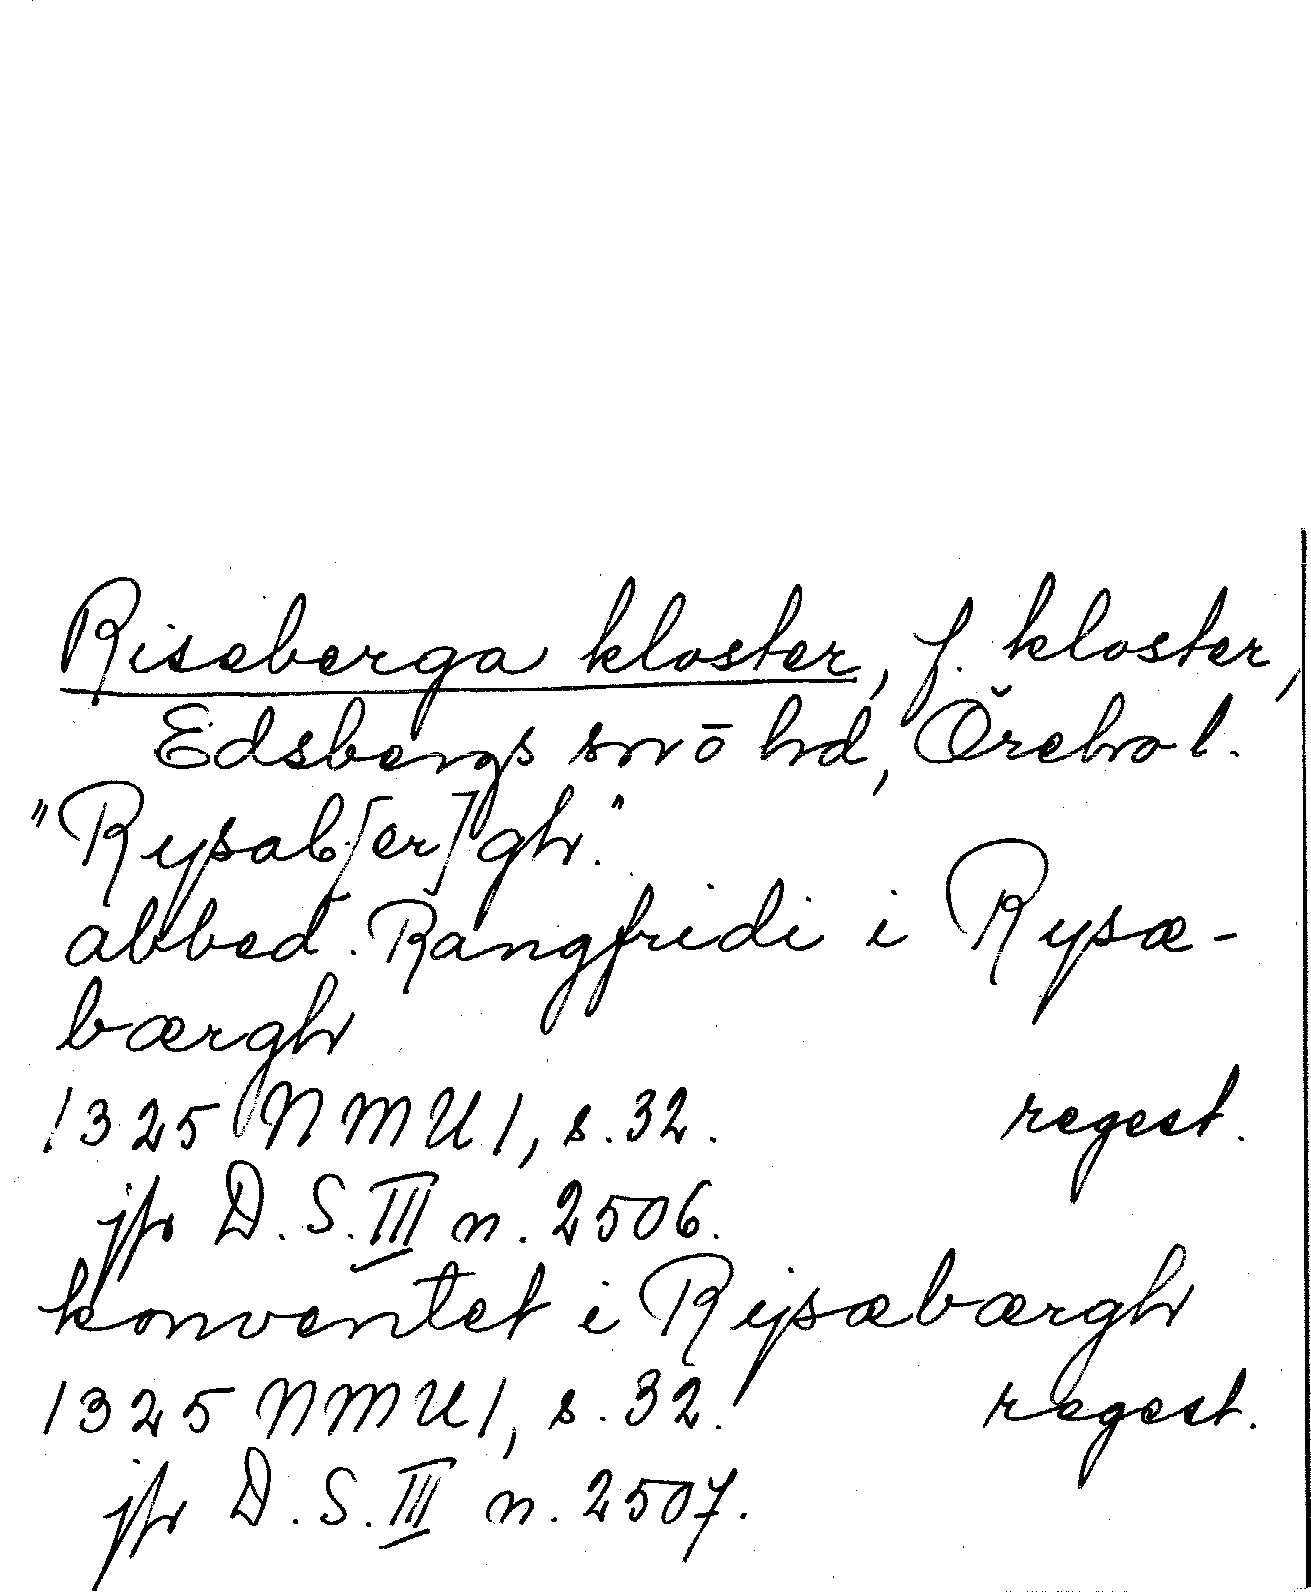 Riseberga kloster, f. kloster,
Edsbergs sn o hd, Örebro l.
"Rysab[er]gh."
abbed. Rangfridi i Rysæ-
bærgh
1325 NMU 1, s. 32. regest.
jfr D. S. III n. 2506.
konventet i Rysæbærgh
1325 NMU 1, s. 32. regest.
jfr D. S. III n. 2507.